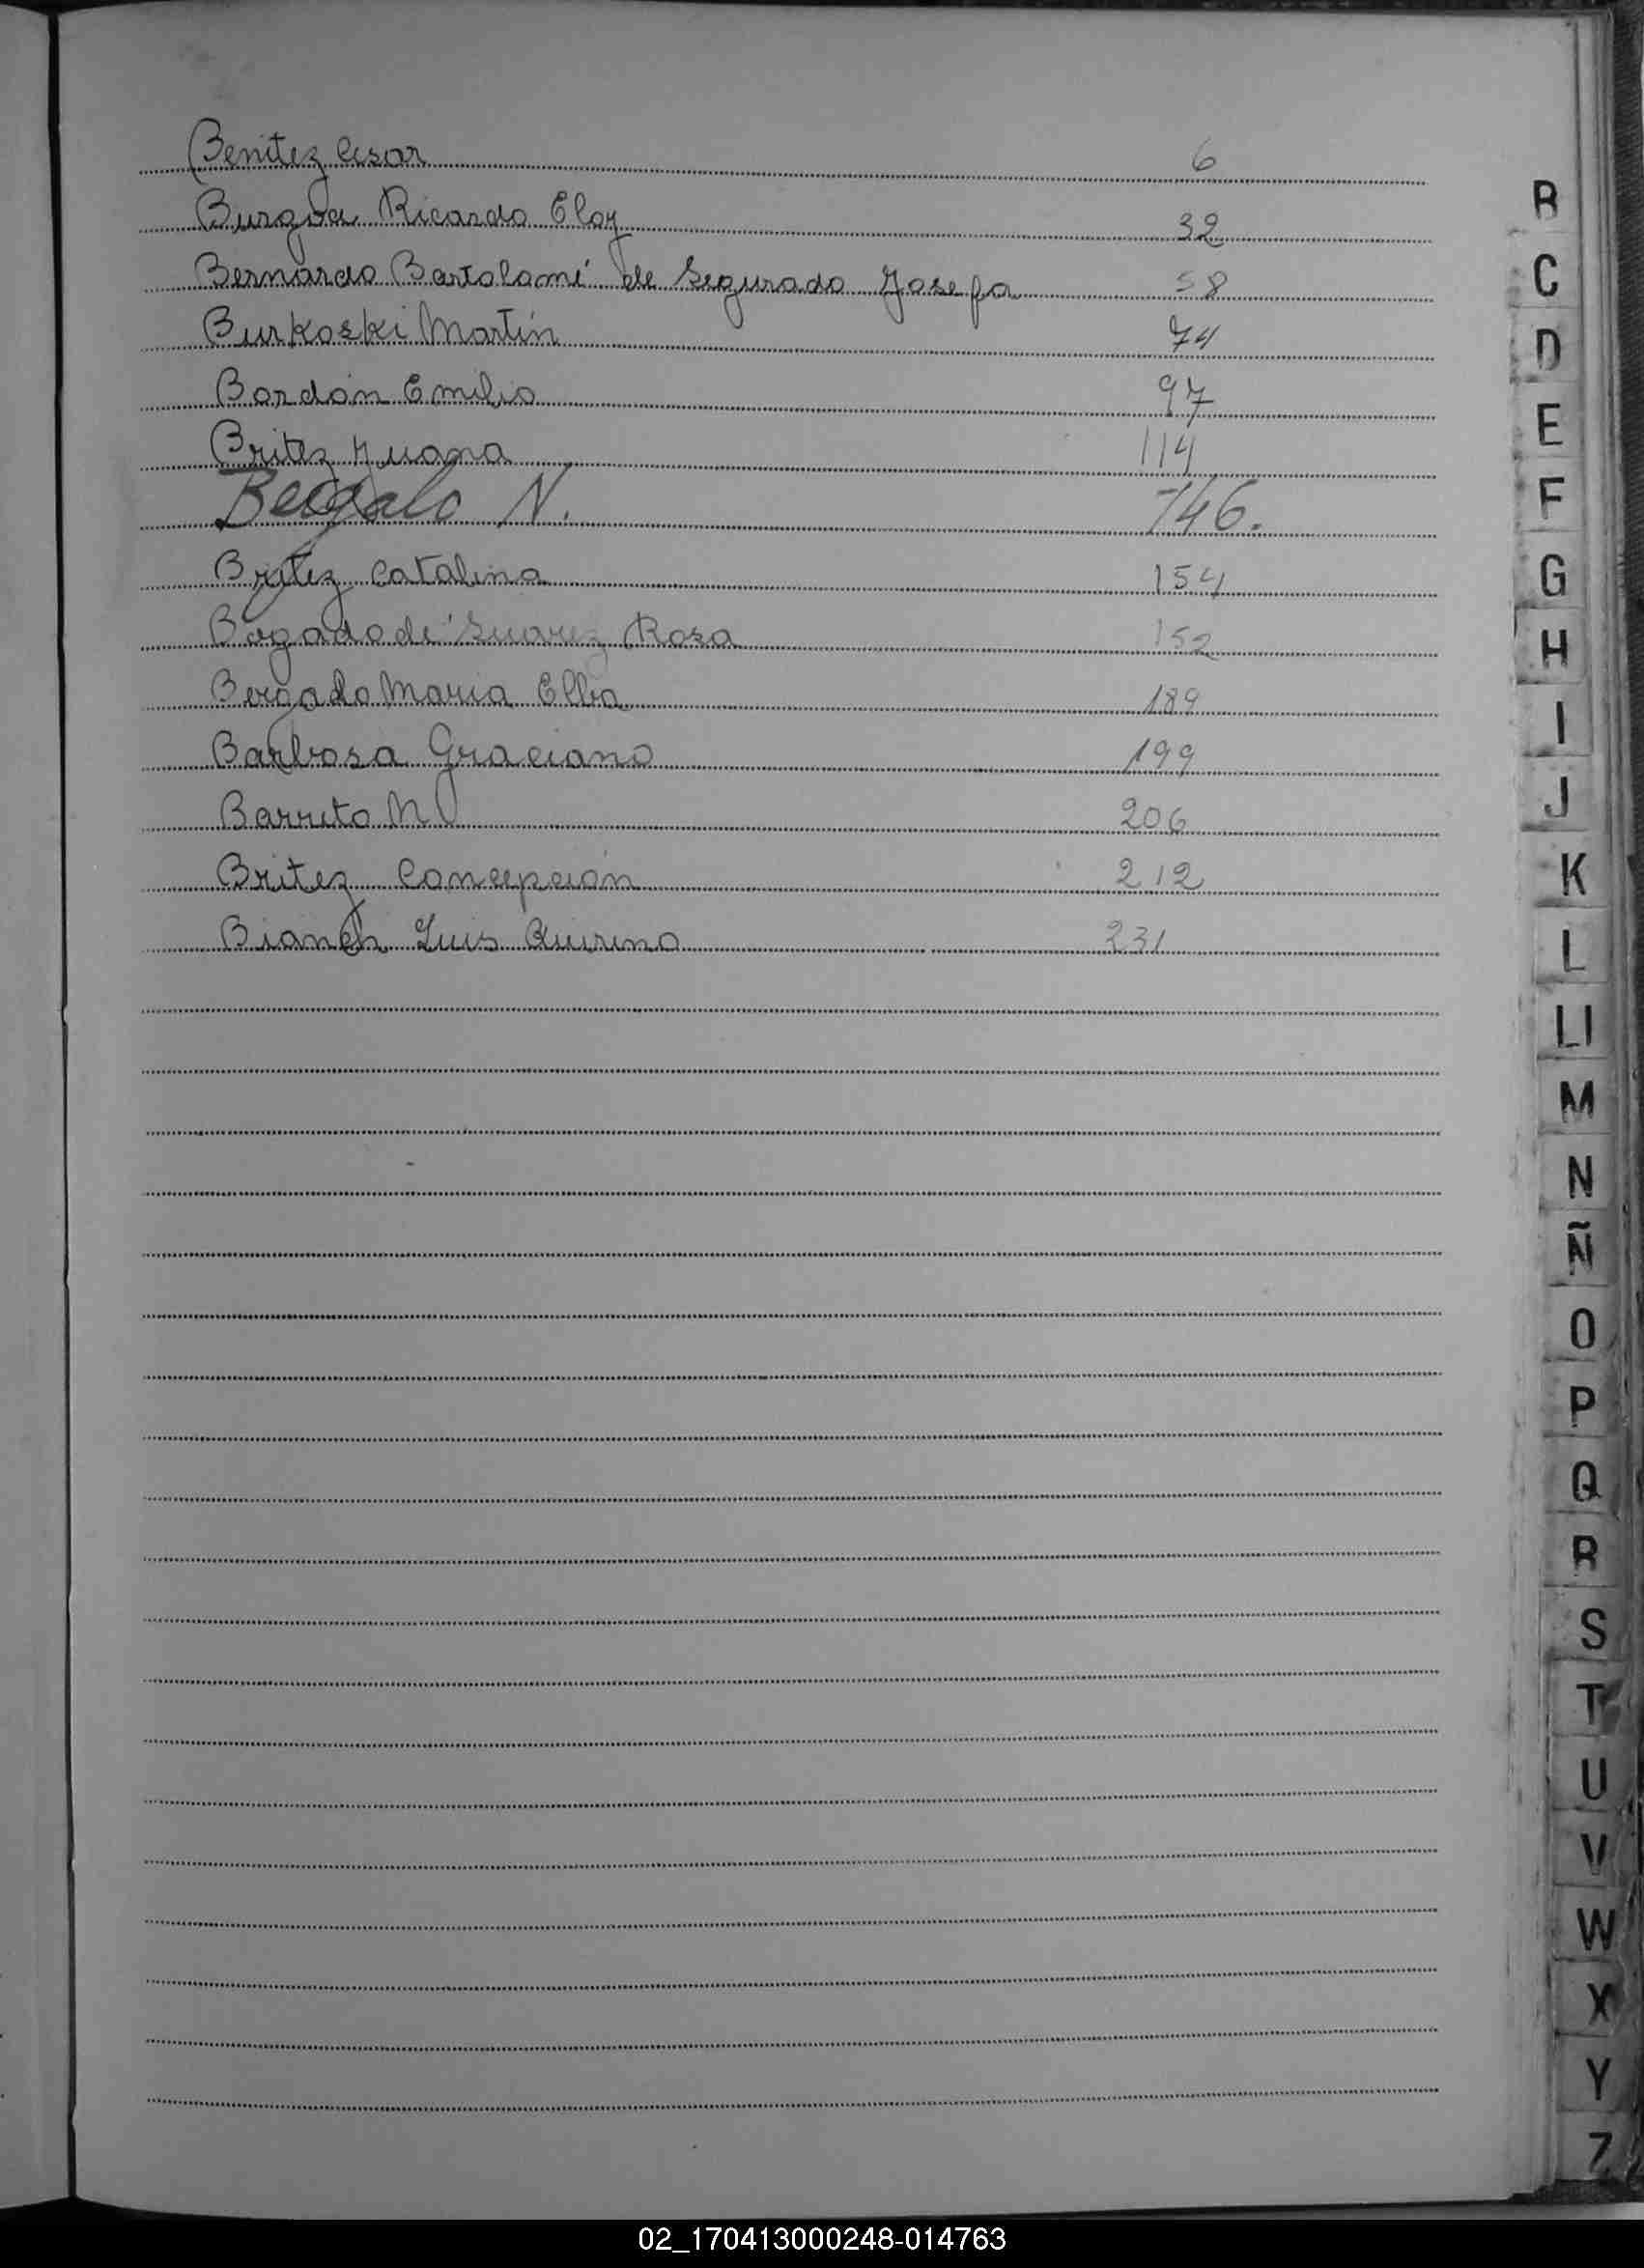 Benitez Cesar 6
Burgoa Ricardo Eloy 32
Bernardo Bartolomé de Segurado Josefa 58
Burkoski Martín 74
Bordón Emilio 97
Britez Juana 114
N. 146.
Britez Catalina 154
Bogado de Suarez Rosa 152
Maria Elba 189
Barbosa Graciano 199
Barreto N 206
Britez Concepción 212
Bianch Luis Quirino 231
B
C
D
E
F
G
H
I
J
K
L
Ll
M
N
Ñ
O
P
Q
R
S
T
U
V
W
X
Y
Z
02_170413000248-014763